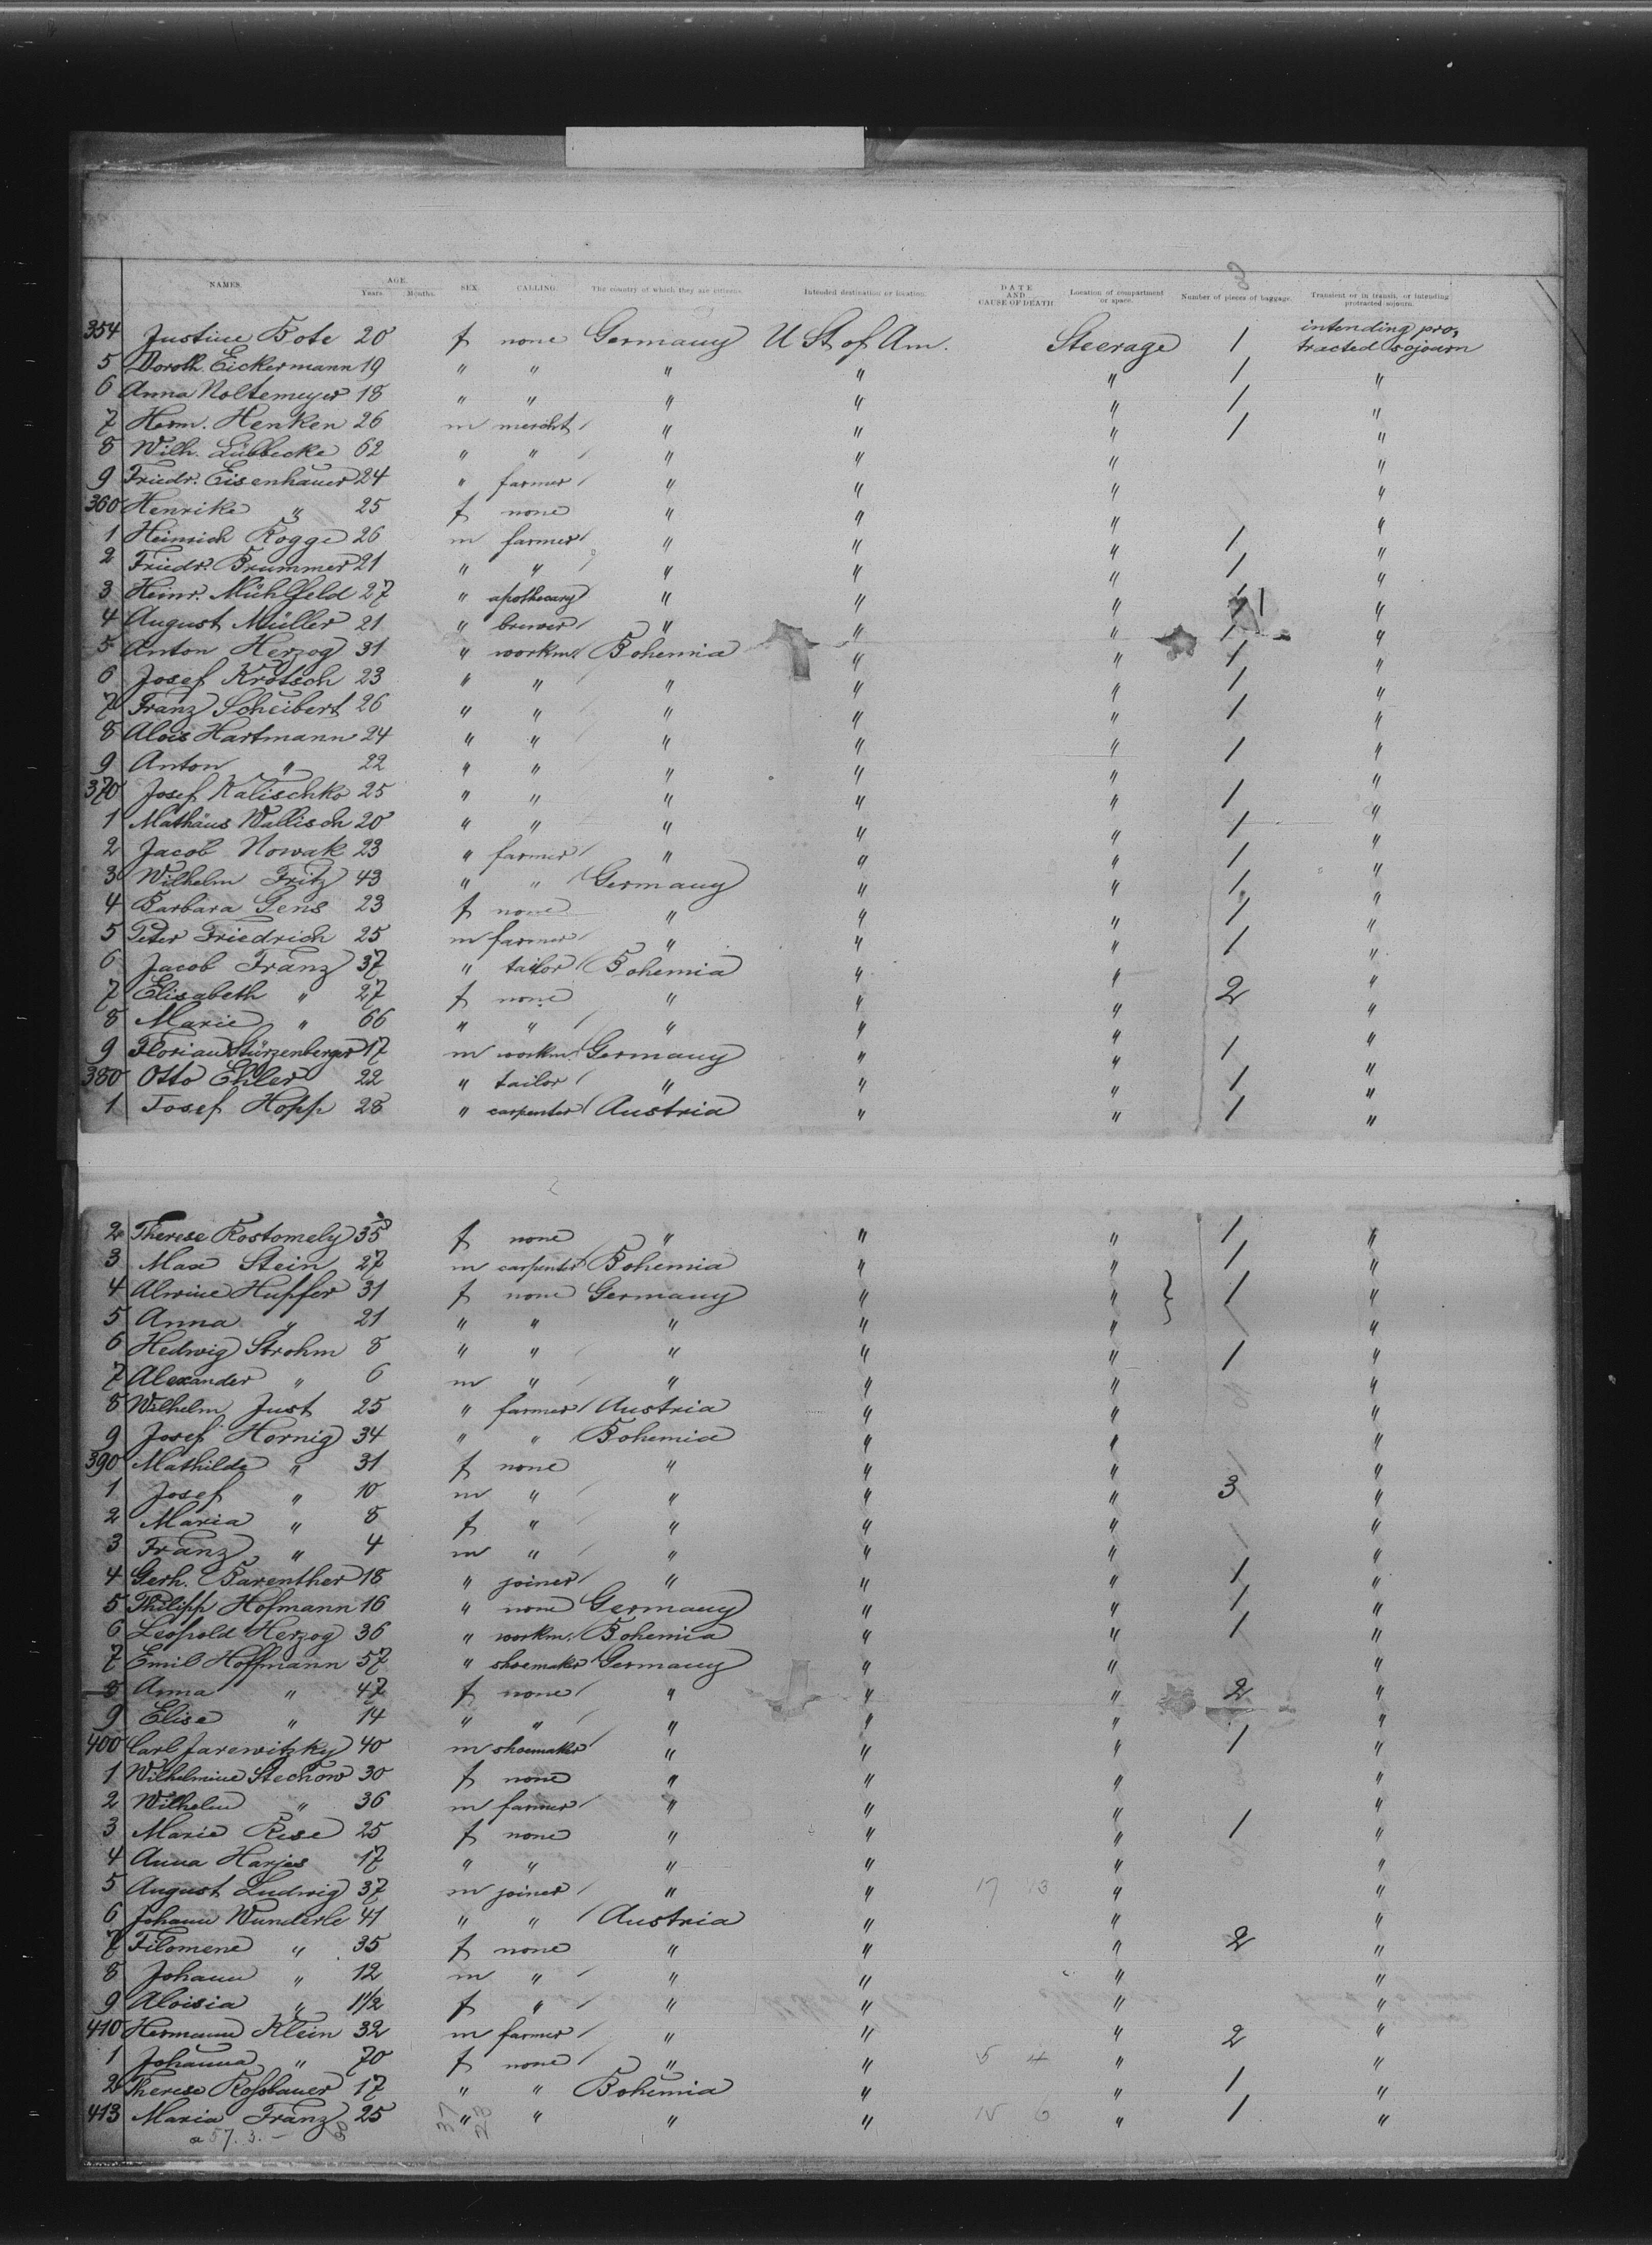 NAMES. AGE. Years. Months. SEX. CALLING. The country of which they are citizens. Intended destination or location. DATE AND CAUSE OF DEATH Location of compartment or space. Number of pieces of baggage. Transient or in transit, or intending protracted sojourn.
354 Justine Bote 20 f none Germany U St of Am. Steerage 1 intending pro, tracted sojourn
5 Doroth. Eickermann 19 " " " " " 1 "
6 Anna Noltemeyer 18 " " " " " 1 "
7 Herm. Henken 26 m mercht " " " 1 "
8 Wilh. Lübbecke 62 " " " " " "
9 Friedr. Eisenhauer 24 " farmer " " " "
360 Henrike " 25 f none " " " "
1 Heinrich Rogge 26 m farmer " " " 1 "
2 Friedr. Brummer 21 " " " " " 1 "
3 Heinr. Mühlfeld 27 " apothecary " " " 1 "
4 August Müller 21 " brewer " " " 1 "
5 Anton Herzog 31 " workm. Bohemia " " 1 "
6 Josef Krötsch 23 " " " " " 1 "
7 Franz Scheibert 26 " " " " " 1 "
8 Alois Hartmann 24 " " " " " 1 "
9 Anton " 22 " " " " " "
370 Josef Kalischko 25 " " " " " 1 "
1 Mathäus Wallisch 20 " " " " " 1 "
2 Jacob Nowak 23 " farmer " " " 1 "
3 Wilhelm Fritz 43 " " Germany " " 1 "
4 Barbara Gens 23 f none " " " 1 "
5 Peter Friedrich 25 m farmer " " " 1 "
6 Jacob Franz 37 " tailor Bohemia " " "
7 Elisabeth " 27 f none " " " 2 "
8 Marie " 66 " " " " " "
9 Florian Stürzenberger 17 m workm. Germany " " 1 "
380 Otto Ehler 22 " tailor " " " 1 "
1 Josef Hopp 28 " carpenter Austria " " 1 "
2 Therese Rostomely 35 f none " " " 1 "
3 Max Stein 27 m carpenter Bohemia " " 1 "
4 Alwine Hupfer 31 f none Germany " " } 1 "
5 Anna " 21 " " " " " "
6 Hedwig Strohm 8 " " " " " 1 "
7 Alexander " 6 m " " " " "
8 Wilhelm Just 25 " farmer Austria " " "
9 Josef Hornig 34 " " Bohemia " " "
390 Mathilde " 31 f none " " " "
1 Josef " 10 m " " " " 3 "
2 Maria " 8 f " " " " "
3 Franz " 4 m " " " " "
4 Gerh. Barenther 18 " joiner " " " 1 "
5 Philipp Hofmann 16 " none Germany " " 1 "
6 Leopold Herzog 36 " workm. Bohemia " " 1 "
7 Emil Hoffmann 57 " shoemaker Germany " " "
8 Anna " 47 f none " " " 2 "
9 Elise " 14 " " " " " "
400 Carl Jarewitzky 40 m shoemaker " " " 1 "
1 Wilhelmine Stechow 30 f none " " " "
2 Wilhelm " 36 m farmer " " " "
3 Marie Rese 25 f none " " " 1 "
4 Anna Harjes 17 " " " " " "
5 August Ludwig 37 m joiner " " 17 13 " "
6 Johann Wunderle 41 " " Austria " " "
7 Filomene " 35 f none " " " 2 "
8 Johann " 12 m " " " " "
9 Aloisia " 1 1/2 f " " " " "
410 Hermann Klein 32 m farmer " " " 2 "
1 Johanna " 70 f none " " 5 4 " "
2 Therese Roßbauer 17 " " Bohemia " " 1 "
413 Maria Franz 25 " " " " 15 6 " 1 "
57. 3. –